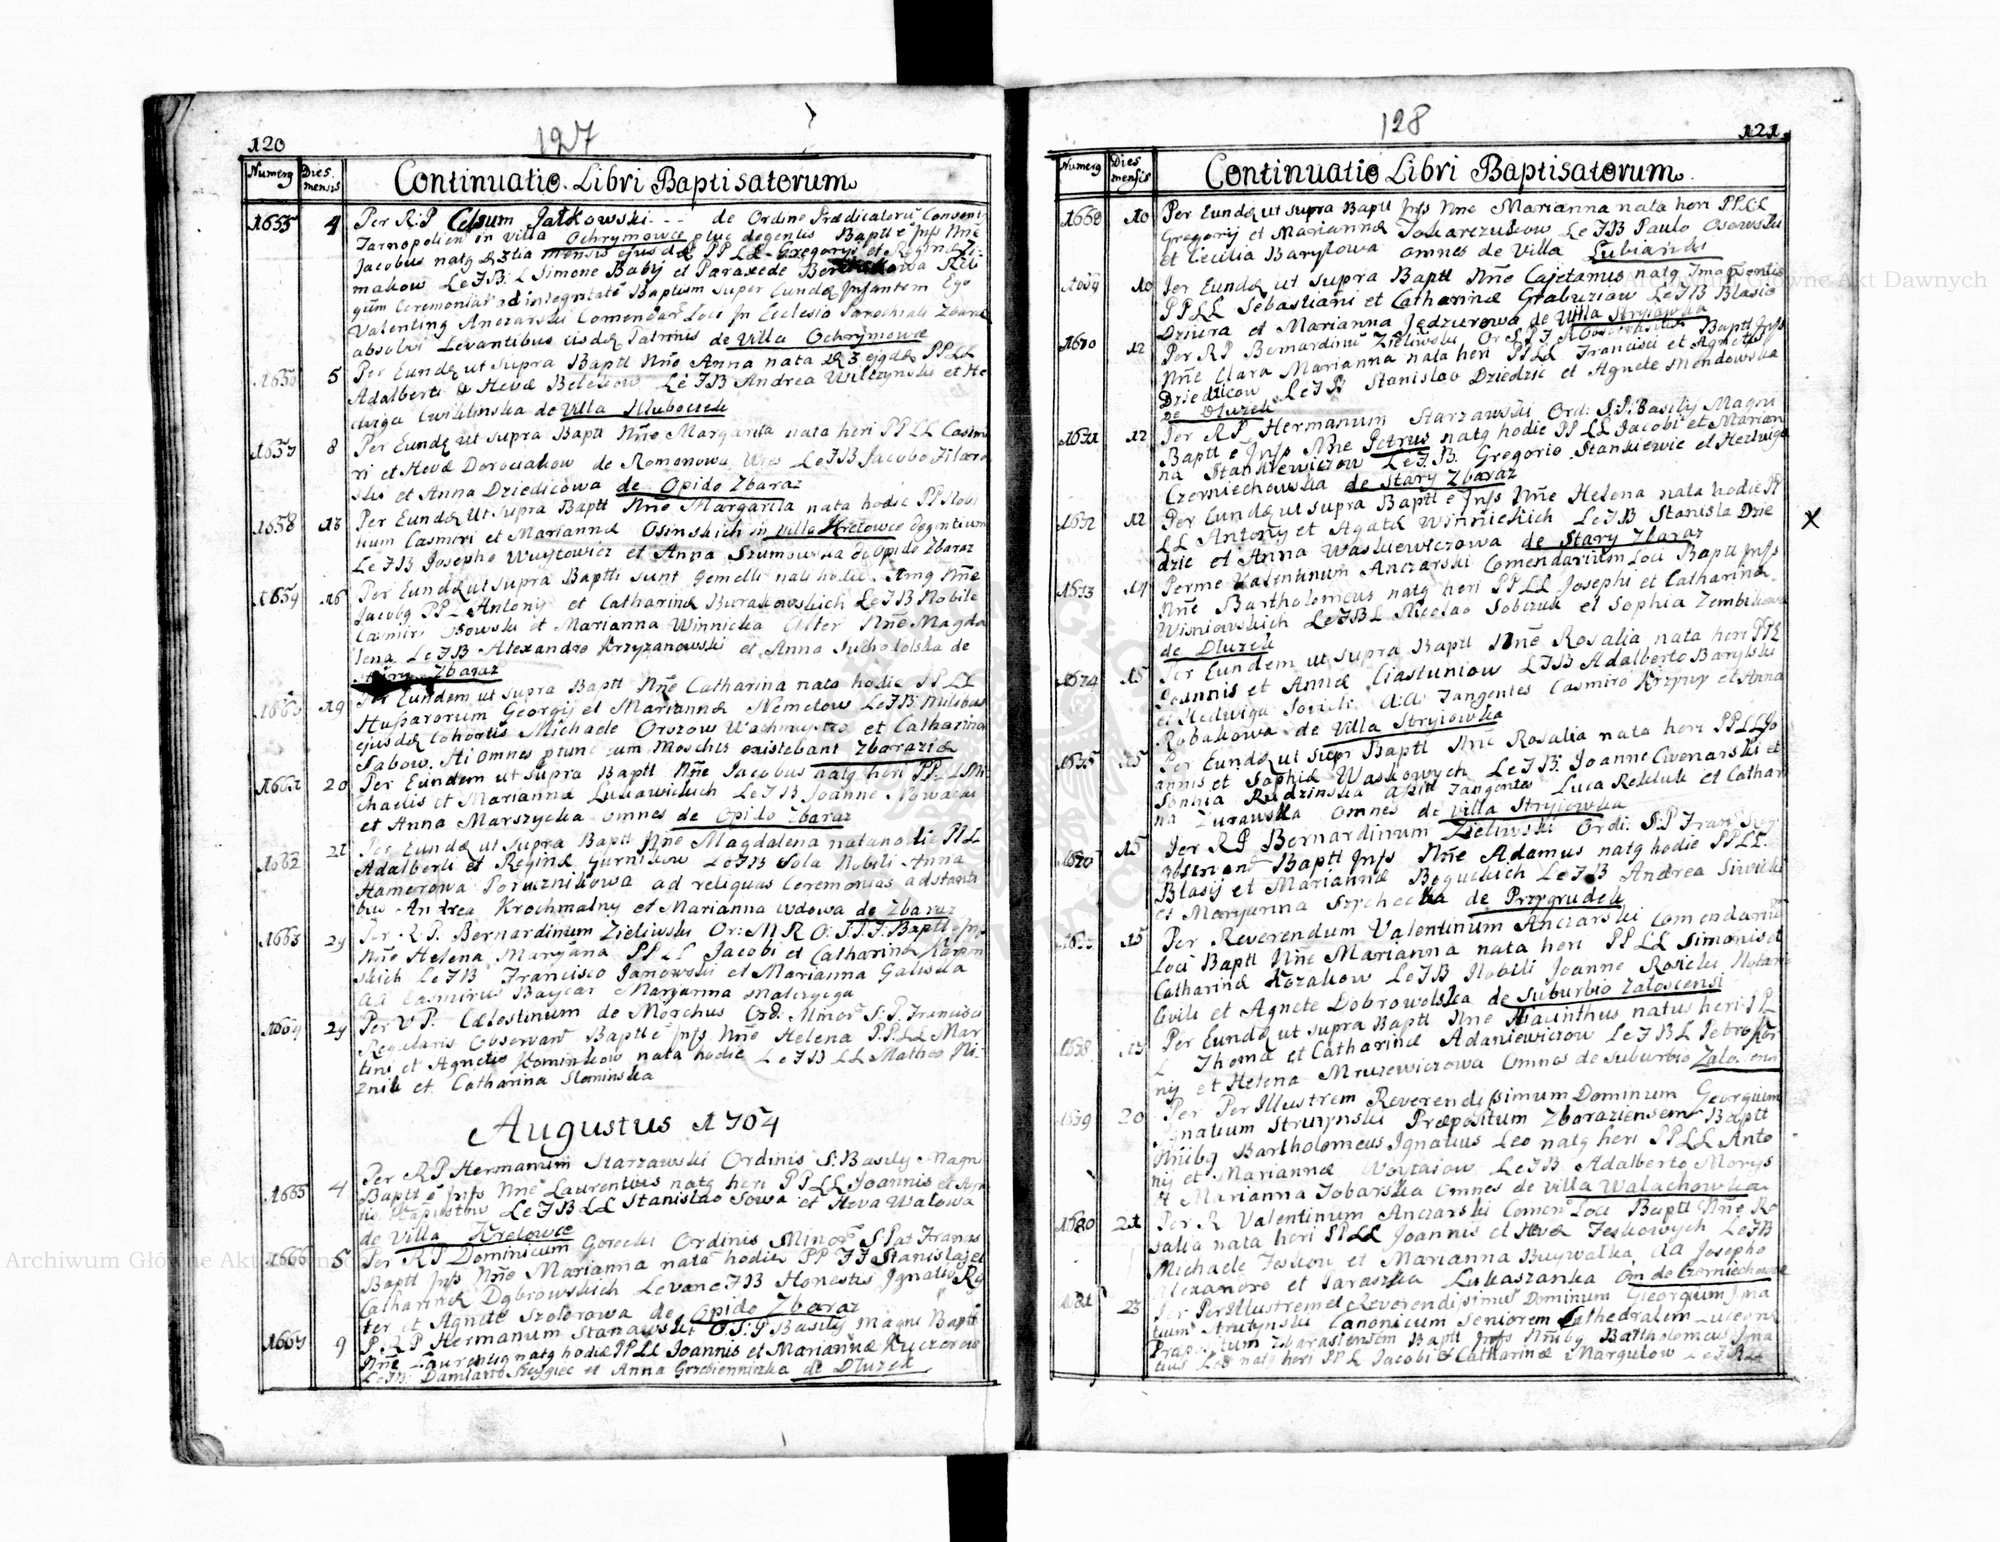 120
127
Numerg
Dies mensis
Continuatio Libri Baptisatorum
1655 4 Per R:P Celsum Jatkowski - - - de Ordine Prædicatorū Convent
Tarnopolien in Villa Ochrymowce ptuc degentis Baptt ē Infs Nñe
Jacobus natg mensis ejusdē PPLL Gregorij et Reginæ Zi-
makow LeJB: L Simone Baby et Paraxede
Ceremoniat ad integritatē Baptism super Eundē Infantem Ego
Valenting Anczarski Comendar Loci In Ecclesia Parochiali Zbaraz
absolvi Levantibus iisdē Patrinis de Villa Ochrymowce
1656 5 Per Eundē ut supra Baptt Nñe Anna nata ejqdē PPLL
Adalberti & Hevæ Beleliow LeJB Andrea Wilczynski et He
dviga Cwiklinska de Villa Hluboczek
1657 8 Per Eundē ut supra Baptt Nñe Margarita nata heri PPLL Casim
ri et Hevæ Dorociakow de Romonowa Wies LeJB Jacobo Filaro
ski et Anna Dziedicowa de Opido Zbaraz
1658 13 Per Eundē ut supra Baptt Nñe Margarita nata hodie PP Nobi
lium Casimiri et Mariannæ Osinskich in villa Kretowce degentium
LeJB Josepho Wuytowicz et Anna Szumowska de Opido Zbaraz
1659 16 Per Eundē ut supra Baptti sunt Gemelli nati hodie. Nñe
Jacobg PP Antonij et Catharinæ Burakowskich LeJB Nobile
Casimiri Osowski et Marianna Winnicka Alter Nñe Magda
lena LeJB Alexandro Krzyzanowski et Anna Sucholotska de
Stary Zbaraz
1660 19 Per Eundem ut supra Baptt Nñe Catharina nata hodie PPLL
Hußarorum Georgij et Mariannæ Nemetow LeJB: Militibus
ejusdē Cohortis Michaele Orozow Wachmystrz et Catharina
Sabow. Hi omnes ptunc cum Moschis existebant Zbaraziæ
1661 20 Per Eundem ut supra Baptt Nñe Jacobus natg heri PPLL Mi
chaelis et Mariannæ Lukawickich LeJB Joanne Nowacki
et Anna Marszycka omnes de Opido Zbaraz
1662 21 Per Eundē ut supra Baptt Nñe Magdalena nata hodie PPLL
Adalberti et Reginæ Gurnikow LeJB Sola Nobili Anna
Hamerowa Porucznikowa ad reliquas Ceremonias adstanti
bus Andrea Krochmalny et Marianna wdowa de Zbaraz
1663 29 Per R:P. Bernardinum Zieliwski Or: M R O: S:P:F: Baptt ē Infs
Nñe Helena Maryana PPLL Jacobi et Catharinæ
skich LeJB Francisco Janowski et Marianna Galuska
AA Casmirus Baycar Maryanna Malczyga
1664 29 Per V P: Cælestinum de Morchus Ord: Minor S:P. Francisci
Regularis Observan Baptt ē Infs Nñe Helena P.P.LL Mar
tini et Agnetis Kominkow nata hodie LeJB LL Matheo Mi-
znik et Catharina Slominska
Augustus 1764
1665 4 Per RP Hermanum Starzawski Ordinis S: Basilij Magni
Baptt ē Infs Nñe Laurentius natg heri PPLL Joannis et Agne
tis Kapustow LeJB LL Stanislao Sowa et Heva Watowa
de Villa Kretowce
1666 5 Per RP Dominicum Gorecki Ordinis Minor S Pat Francis
Baptt Infs Nñe Marianna nata hodie PP FF Stanislai et
Catharinæ Dąbrowskich Levane JB Honestis Ignatio Ry
ter et Agnete Szoferowa de Opido Zbaraz
1667 9 P. R P Hermanum Starzawski O.S:P Basilij Magni Baptt
Nñe Laurentig natg hodie PPLL Joannis et Mariannæ Kuczerow
LeJB: Damiano et Anna Grzebienniczka de Dluzek
128
121
Numerg
Dies mensis
Continuatio Libri Baptisatorum
1668 10 Per Eundē ut supra Baptt Infs Nñe Marianna nata heri PPLL
Gregorij et Mariannæ Tokarczukow LeJB Paulo Osowski
et Cecilia Barylowa omnes de Villa Lubianki
1669 10 Per Eundē ut supra Baptt Nñe Cajetanus natg
PPLL Sebastiani et Catharinæ Grabuziow LeJB Blasio
Dziura et Marianna Jędzurowa de Villa Stryiowka
1670 12 Per RP Bernardinū Zieliwski Or S P F R Observantis Baptt Infs
Nñe Clara Marianna nata heri PPLL Francisci et Agnetis
Dziedzicow LeJB Stanislao Dziedzic et Agnete Mendowska
de Dluzek
1671 12 Per RP Hermanum Starzawski Ord: S.P: Basilij Magni
Baptt ē Infs Nñe Petrus natg hodie PPLL Jacobi et Marian
na Stankiewiczow LeJB. Gregorio Stankiewic et Hedwiga
Czerniechowska de Stary Zbaraz
1672 12 Per Eundē ut supra Baptt ē Infs Nñe Helena nata hodie PP
LL Antonij et Agatæ Winnickich LeJB Stanisla Dzie
dzic et Anna Waskiewiczowa de Stary Zbaraz
X
1673 14 Per me Valentinum Anczarski Comendarium Loci Baptt Infs
Nñe Bartholomeus natg heri PPLL Josephi et Catharinæ
Wisniowskich LeJBL Nicolao Sobczuk et Sophia Zembikowa
de Dluzek
1674 15 Per Eundem ut supra Baptt Nñe Rosalia nata heri PPL
Joannis et Annæ Ciastuniow LJB Adalberto Barylski
et Hedwiga Tangentes Casmiro Krzywy et Anna
Robakowa de Villa Stryiowka
1675 15 Per Eundē ut Supr Baptt Nñe Rosalia nata heri PPLL Jo
annis et Sophiæ Waskowych LeJB: Joanne Cwenarski et
Sophia Rudzinska Tangente Luca Rekluk et Cathar
na Zurawska omnes de Villa Stryiowka
1676 15 Per RP Bernardinum Zieliwski Ordi: S:P Fran: Reg
observand Baptt Infs Nñe Adamus natg hodie PPLL.
Blasij et Mariannæ Boguckich LeJB Andrea Siwicki
et Maryanna Szychecka de Przygrudek
1677 15 Per Reverendum Valentinum Anczarski Comendariū
Loci Baptt Nñe Marianna nata heri PPLL Simonis et
Catharinæ Kozakow LeJB Nobili Joanne Rosicki Notario
Civili et Agnete Dobrowolska de Suburbio Zaloscensi
1678 15 Per Eundē ut supra Baptt Nñe Hiacinthus natus heri P P
L Thomæ et Catharinæ Adaniewiczow LeJBL Petro
nij et Helena Mruzewiczowa Omnes de Suburbio
1679 20 Per PerIllustrem Reverendißimum Dominum Georgium
Ignatium Strutynski Præpositum Zbaraziensem Baptt
Nñibg Bartholomeus Ignatius Leo natg heri PPLL Anto
nij et Mariannæ Woytaiow LeJB Adalberto Morys
et Marianna Tobarska Omnes de Villa Walachowka
1680 21 Per R Valentinum Anczarski Comen Loci Baptt Nñe Ro
salia nata heri PPLL Joannis et Hevæ Feskowych LeJB
Michaele Feskow et Marianna Buywalka AA Josepho
Alexandro et Paraszka Lukaszanka Om de Czerniechowce
1681 23 Per PerIllustrem et Reverendißimū Dominum Georgium Igna
tium Strutynski Canonicum Seniorem Cathedralem Luceori
Præpositum Zbarasiensem Baptt Infs Nñibg Bartholomeus Igna
tius Leo natg heri PPL Jacobi & Catharinæ Margulow LeJBLL
Archiwum Główne Akt Dawnych